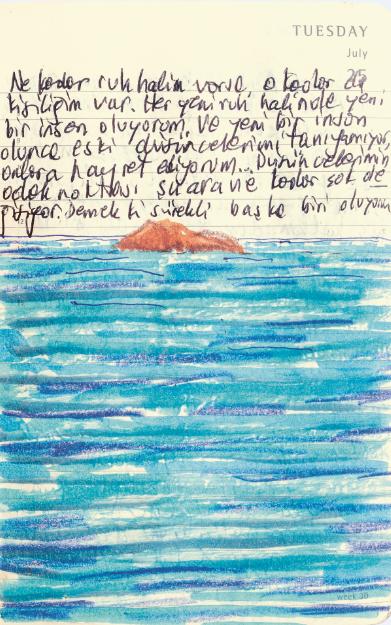 TUESDAY
July
Ne kadar ruh halim varsa, o kadar da
kişiliğim var. Her yeni ruh halinde yeni
bir insan oluyorum. Ve yeni bir insan
olunca eski düşüncelerimi tanıyamıyor,
onlara hayret ediyorum... Düşüncelerimin
odak noktası su ara ne kadar çok de
ğişiyor. Demek ki sürekli başka biri oluyorum
week 30